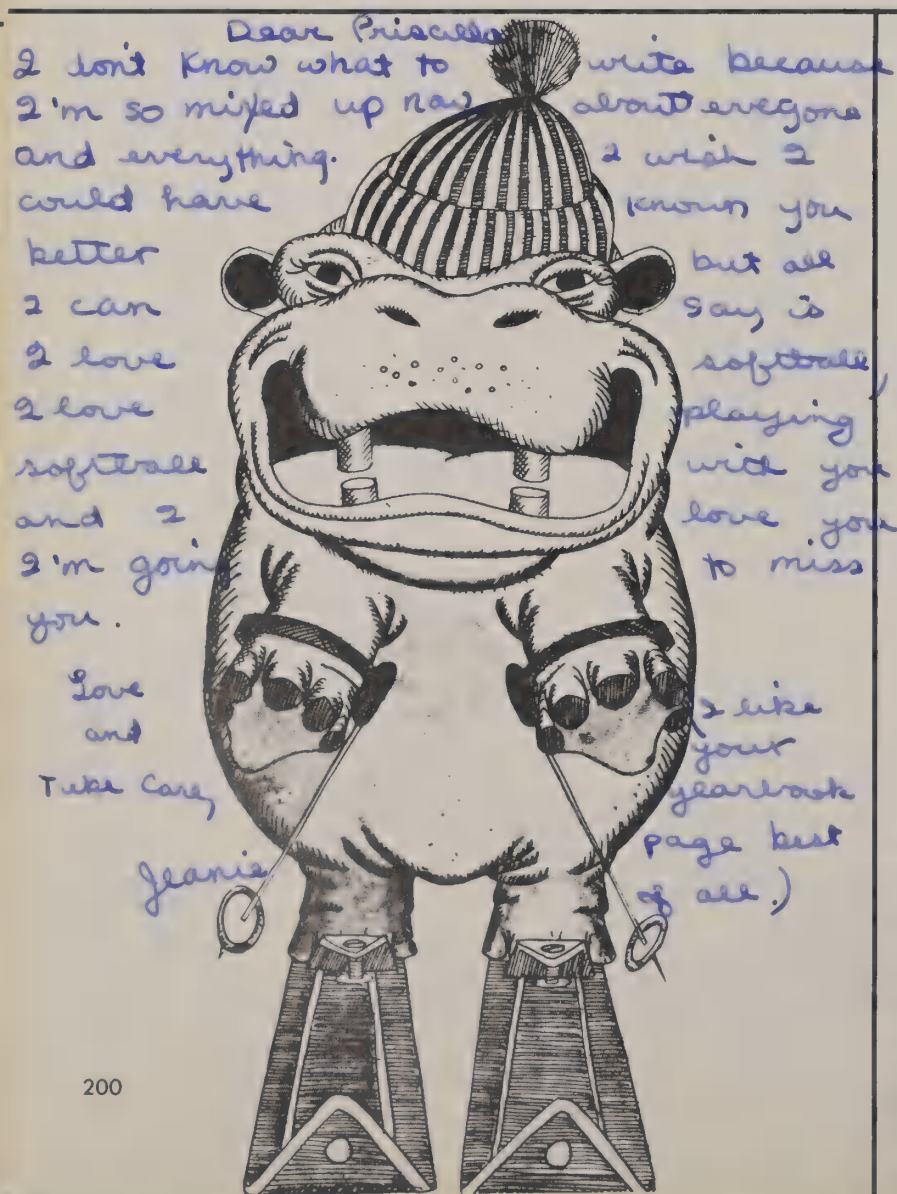 Dear Priscilla
I don't know what to write because
I'm so mixed up now about evegone
and everything. I wish I
could have known you
better but all
I can say is
I love softball,
I love playing
softball with you
and I love you
I'm goin to miss
you.
Love
and
Take Care,
Jeanie
(I like
your
yearbook
page best
of all.)
200